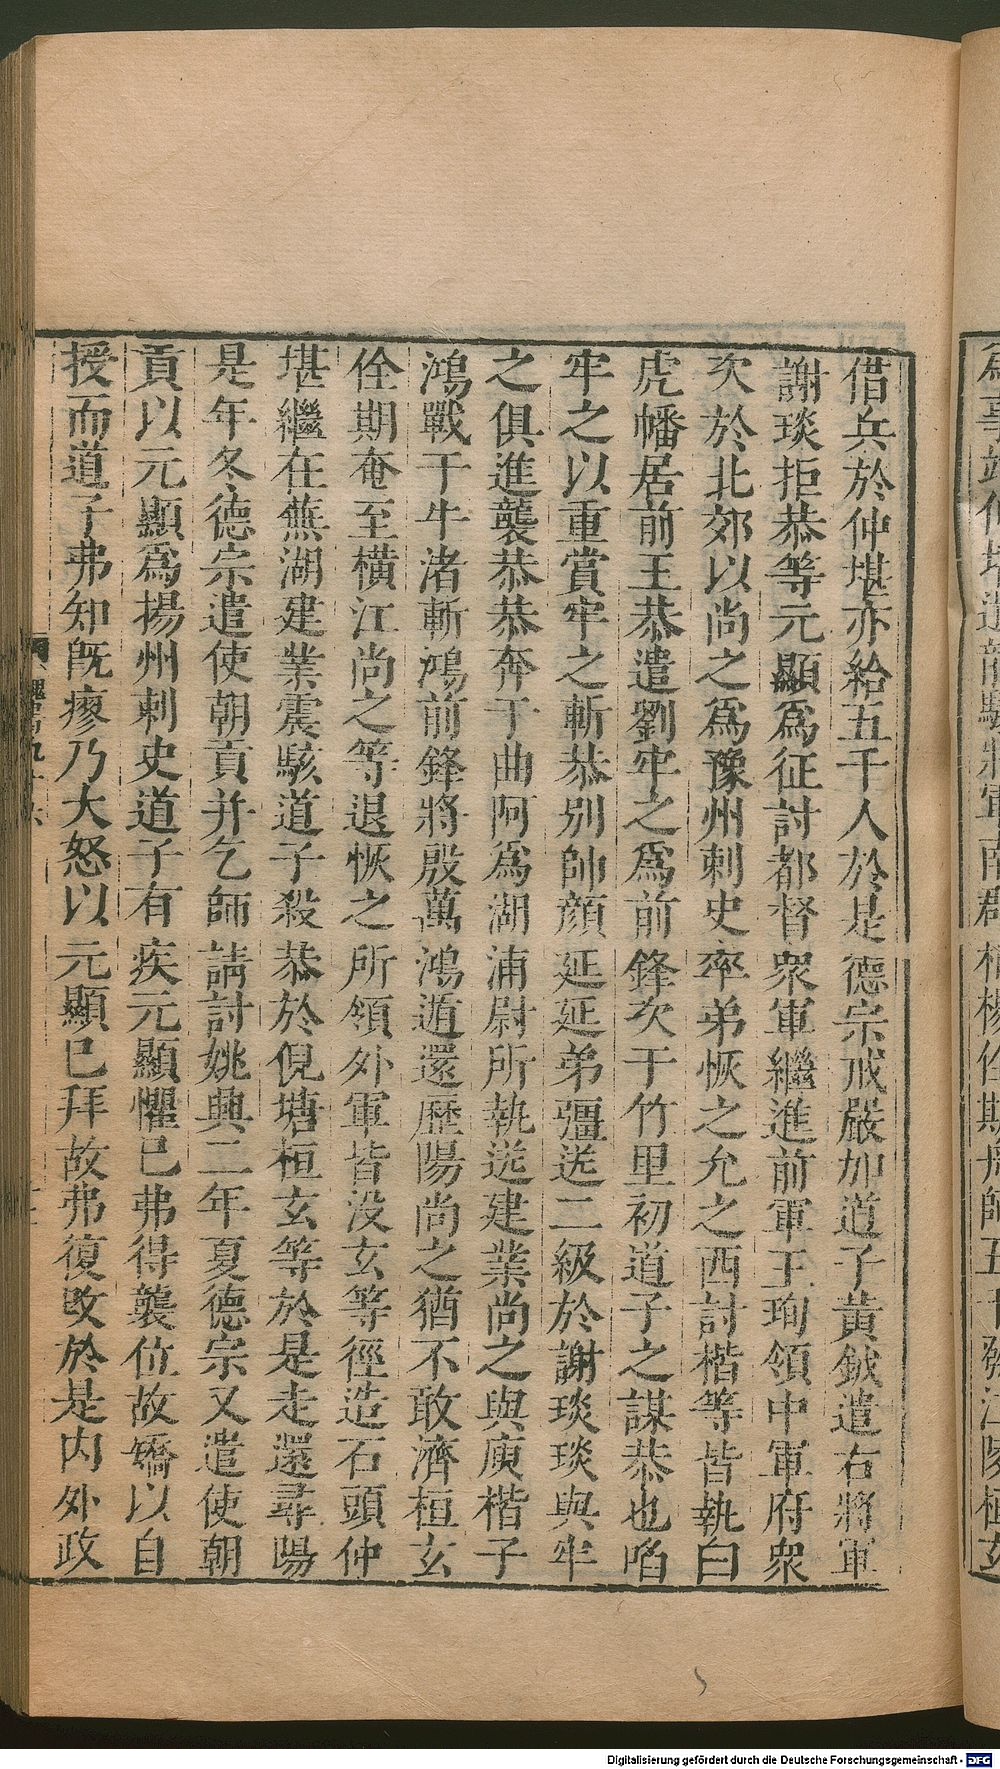 借兵於仲堪亦給五千人於是德宗戒嚴加道子黃鉞遣右將軍
謝琰拒恭等元顯爲征討都督衆軍繼進前軍王珣領中軍府衆
次於北郊以尚之爲豫州刺史率弟恢之允之西討楷等皆執白
虎幡居前王恭遣劉牢之爲前鋒次于竹里初道子之謀恭也啗
牢之以重賞牢之斬恭別帥顏延延弟彊送二級於謝琰琰與牢
之俱進襲恭恭奔于曲阿爲湖浦尉所執送建業尚之與庾楷子
鴻戰于牛渚斬鴻前鋒將殷萬鴻遁還歷陽尚之猶不敢濟桓玄
佺期奄至橫江尚之等退恢之所領外軍皆没玄等徑造石頭仲
堪繼在蕪湖建業震駭道子殺恭於倪塘桓玄等於是走還尋陽
是年冬德宗遣使朝貢并乞師請討姚興二年夏德宗又遣使朝
貢以元顯爲揚州刺史道子有疾元顯懼已弗得襲位故矯以自
授而道子弗知旣瘳乃大怒以元顯已拜故弗復改於是内外政
Digitalisierung gefördert durch die Deutsche Forschungsgemeinschaft - DFG